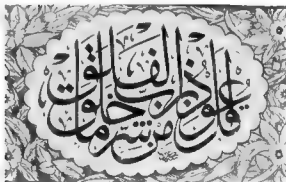 قل اعوذ برب الفلق
من شر ما خلق